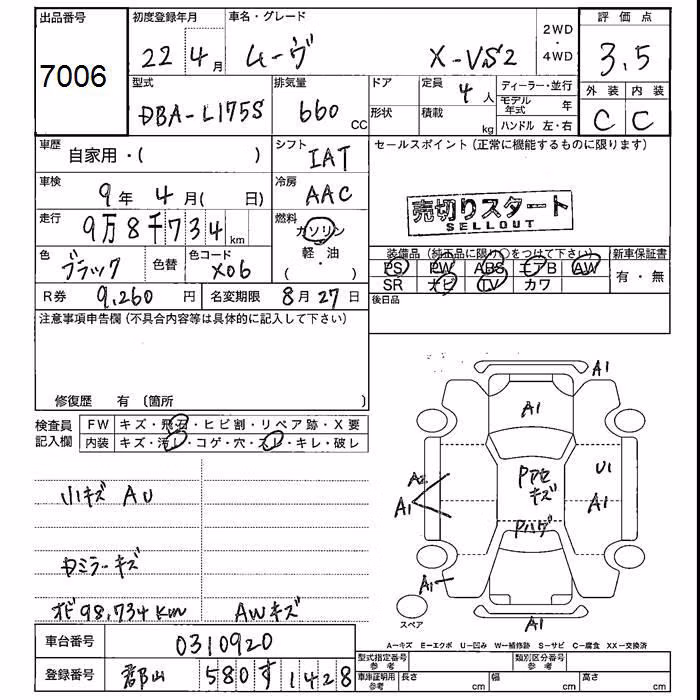 出品番号 初度登録年月 車名・グレード 2WD・4WD 評価点
7006 22年4月 ムーヴ X-VS2 3.5
型式 排気量 ドア 定員 4人 ディーラー・並行 外装 内装
DBA-L175S 660 CC 形状 積載 kg モデル年式 年 C C
ハンドル 左・右
車歴 自家用・( ) シフト IAT セールスポイント(正常に機能するものに限ります)
車検 9年 4月( 日) 冷房 AAC
売切りスタート
SELLOUT
走行 9万8千734km 燃料 ガソリン
軽・油
( ・ )
装備品(純正品に限り○をつけて下さい) 新車保証書
色 ブラック 色替 色コード X06
PS PW ABS エアB AW 有・無
SR ナビ TV カワ
R券 9,260円 名変期限 8月27日 後日品
注意事項申告欄(不具合内容等は具体的に記入して下さい)
修復歴 有〔箇所 〕
検査員記入欄 FW キズ・飛石・ヒビ割・リペア跡・X要
内装 キズ・汚レ・コゲ・穴・スレ・キレ・破レ
A1
A1
Pアセ キズ U1
A2 A1 A1
Pハゲ
A1
A1
小キズ AU
ミラーキズ
98,734km AWキズ
スペア
A−キズ E−エクボ U−凹み W−補修跡 S−サビ C−腐食 XX−交換済
車台番号 0310920
型式指定番号 参考 類別区分番号 参考
登録番号 郡山 580 す 1428
車庫証明用 参考 長さ cm 幅 cm 高さ cm